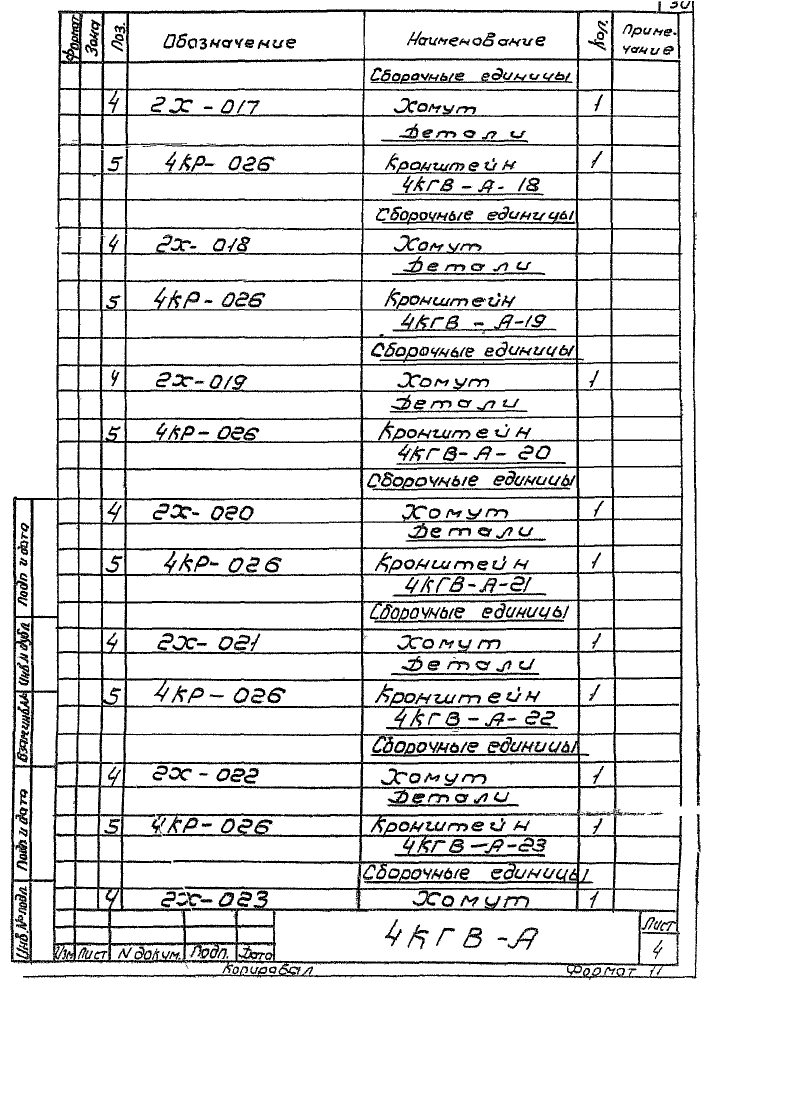 30
Формат Зона Поз. Обозначение Наименование Кол. Приме-
чание
Сборочные единицы
4 2Х-017 Хомут 1
Детали
5 4КР-026 Кронштейн 1
4КГВ-А-18
Сборочные единицы
4 2Х-018 Хомут
Детали
5 4КР-026 Кронштейн
4КГВ-А-19
Сборочные единицы
4 2Х-019 Хомут 1
Детали
5 4КР-026 Кронштейн
4КГВ-А-20
Сборочные единицы
4 2Х-020 Хомут 1
Детали
5 4КР-026 Кронштейн 1
4КГВ-А-21
Сборочные единицы
4 2Х-021 Хомут 1
Детали
5 4КР-026 Кронштейн 1
4КГВ-А-22
Сборочные единицы
4 2Х-022 Хомут 1
Детали
5 4КР-026 Кронштейн 1
4КГВ-А-23
Сборочные единицы
4 2Х-023 Хомут 1
4КГВ-А
Лист
4
Изм Лист N докум. Подп. Дата
Копировал Формат 11
Подп и дата
Инв.N дубл.
Взам.инв.№
Подп и дата
Инв.№ подл.